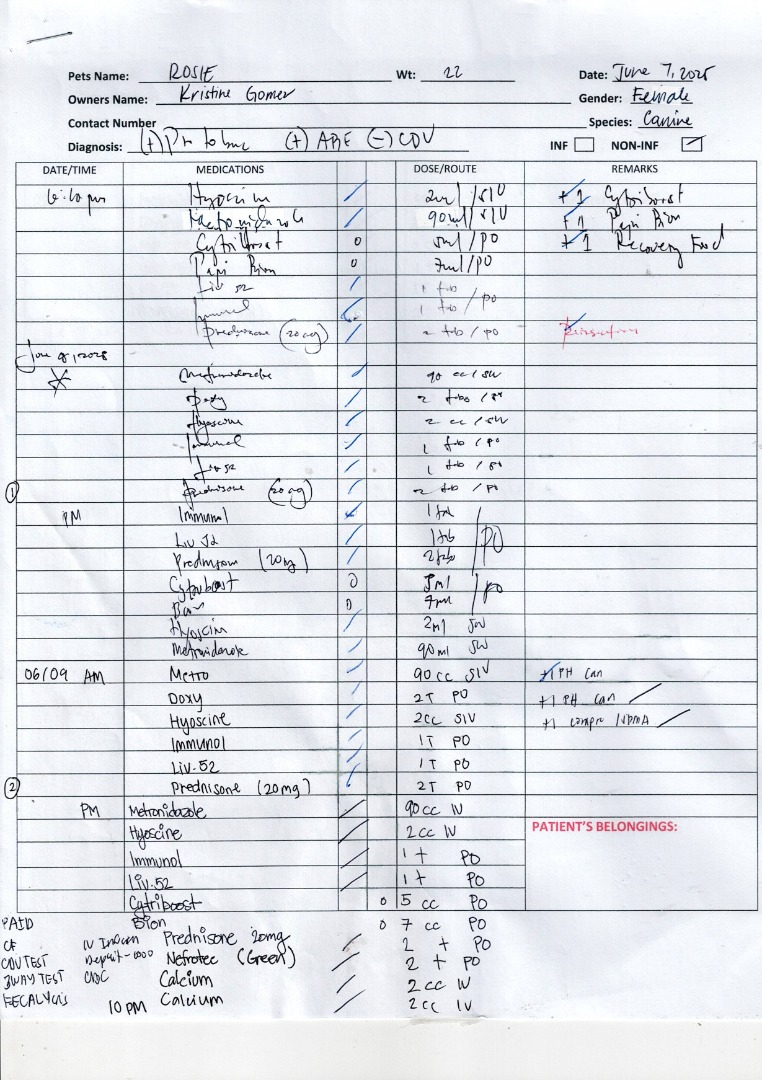 Pets Name: ROSIE Wt: 22 Date: June 7, 2025
Owners Name: Kristine Gomer Gender: Female
Contact Number Species: Canine
Diagnosis: (+) (+) ABE (-) CDV INF NON-INF
DATE/TIME MEDICATIONS DOSE/ROUTE REMARKS
6:10 pm Hyoscin 2ml / SIV +1 Cytriboost
Metronidazole 90ml / SIV +1 Papi Bion
Cytriboost 0 5ml / PO +1 Recovery Food
Papi Bion 0 7ml / PO
Liv 52 1 tab
Immunol 1 tab / PO
Prednisone (20mg) 2 tab / PO
June 8, 2025
Metronidazole 90 cc / SIV
Doxy 2 tabs /
Hyoscine 2 cc / SIV
Immunol 1 tab / PO
Liv 52 1 tab /
1 Prednisone (20mg) 2 tab / PO
PM Immunol 1 tab
Liv 52 1 tab PO
Prednison (20mg) 2 tab
Cytriboost 0 5ml / PO
Bion 0 7ml
Hyoscin 2ml SIV
Metronidazole 90ml SIV
06/09 AM Metro 90cc SIV +1 PH can
Doxy 2T PO +1 PH can
Hyoscine 2cc SIV +1
Immunol 1T PO
Liv-52 1T PO
2 Prednisone (20mg) 2T PO
PM Metronidazole 90cc IV
PATIENT'S BELONGINGS:
Hyoscine 2cc IV
Immunol 1 t PO
Liv-52 1 t PO
Cytriboost 0 5 cc PO
PAID Bion 0 7 cc PO
CF Prednisone 20mg 2 t PO
CDV TEST Deposit- Nefrotec (Green) 2 t PO
3WAY TEST CBC Calcium 2cc IV
FECALYSIS 10 PM Calcium 2cc IV